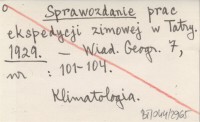 Sprawozdanie prac
ekspedycji zimowej w Tatry.
1929. — Wiad. Geogr. 7,
nr : 101-104.
Klimatologia.